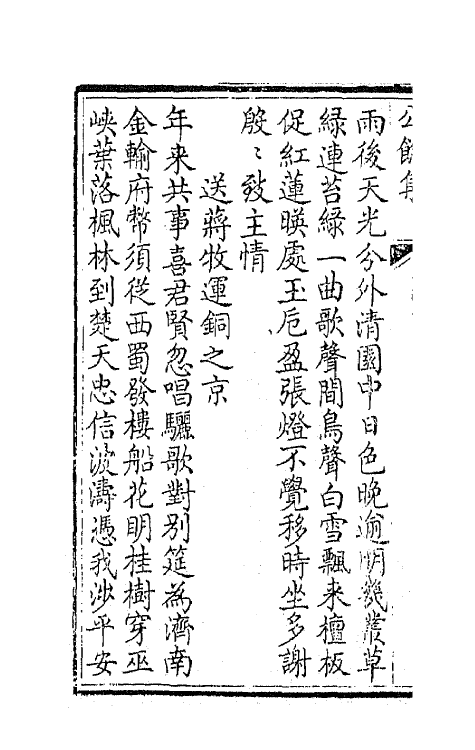 雨後天光分外清園中日色晚逾明幾叢草
綠連苔綠一曲歌聲間鳥聲白雪飄来檀板
促紅蓮暎處玉卮盈張燈不覺移時坐多謝
殷〻致主情
送蔣牧運銅之京
年来共事喜君賢忽唱驪歌對别筵為濟南
金輸府幣須從西蜀發樓船花明桂樹穿巫
峽葉落楓林到楚天忠信波濤憑我涉平安